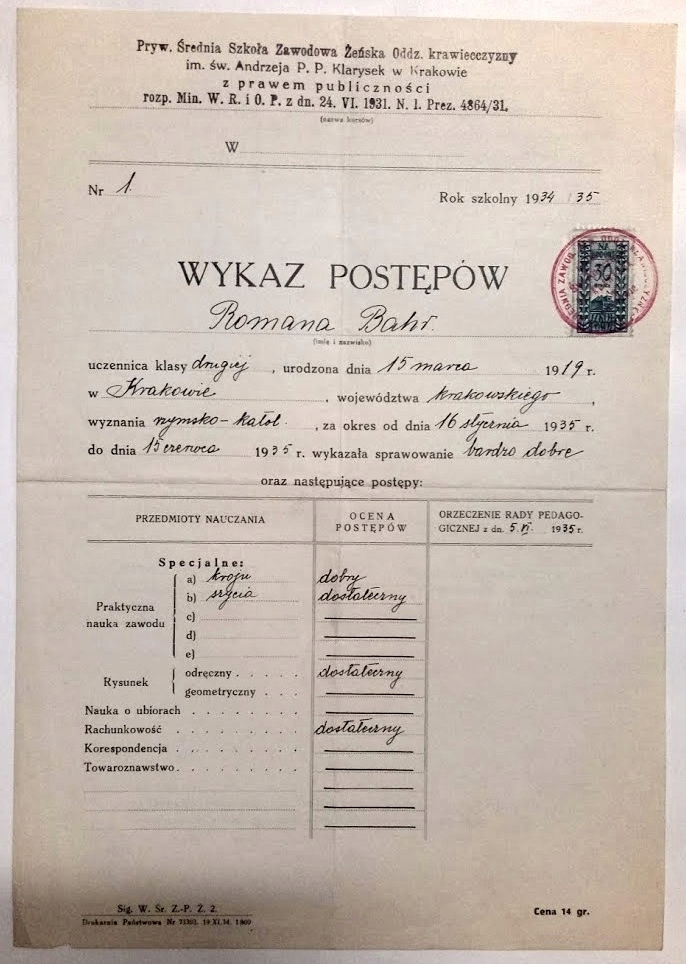 Pryw. Średnia Szkoła Zawodowa Żeńska Oddz. krawiecczyzny
im. św. Andrzeja P. P. Klarysek w Krakowie
z prawem publiczności
rozp. Min. W. R. i O. P. z dn. 24. VI. 1931. N. I. Prez. 4864/31.
(nazwa kursów)
W
Nr 1.
Rok szkolny 1934 35
WYKAZ POSTĘPÓW
30
Romana Bahr.
(imię i nazwisko)
uczennica klasy drugiej, urodzona dnia 15 marca 1919 r.
w Krakowie, województwa krakowskiego,
wyznania rzymsko-katol., za okres od dnia 16 stycznia 1935 r.
do dnia 15 czerwca 1935 r. wykazała sprawowanie bardzo dobre
oraz następujące postępy:
PRZEDMIOTY NAUCZANIA
OCENA
POSTĘPÓW
ORZECZENIE RADY PEDAGO-
GICZNEJ z dn. 5. VI. 1935 r.
Specjalne:
Praktyczna
nauka zawodu
a) kroju dobry
b) szycia dostateczny
c)
d)
e)
Rysunek
odręczny . . . . . dostateczny
geometryczny . . .
Nauka o ubiorach . . . . . . .
Rachunkowość . . . . . . . . dostateczny
Korespondencja . . . . . . . .
Towaroznawstwo . . . . . . . .
Sig. W. Śr. Z.-P. Ż. 2.
Drukarnia Państwowa Nr 71303. 19 XI.34. 1900
Cena 14 gr.